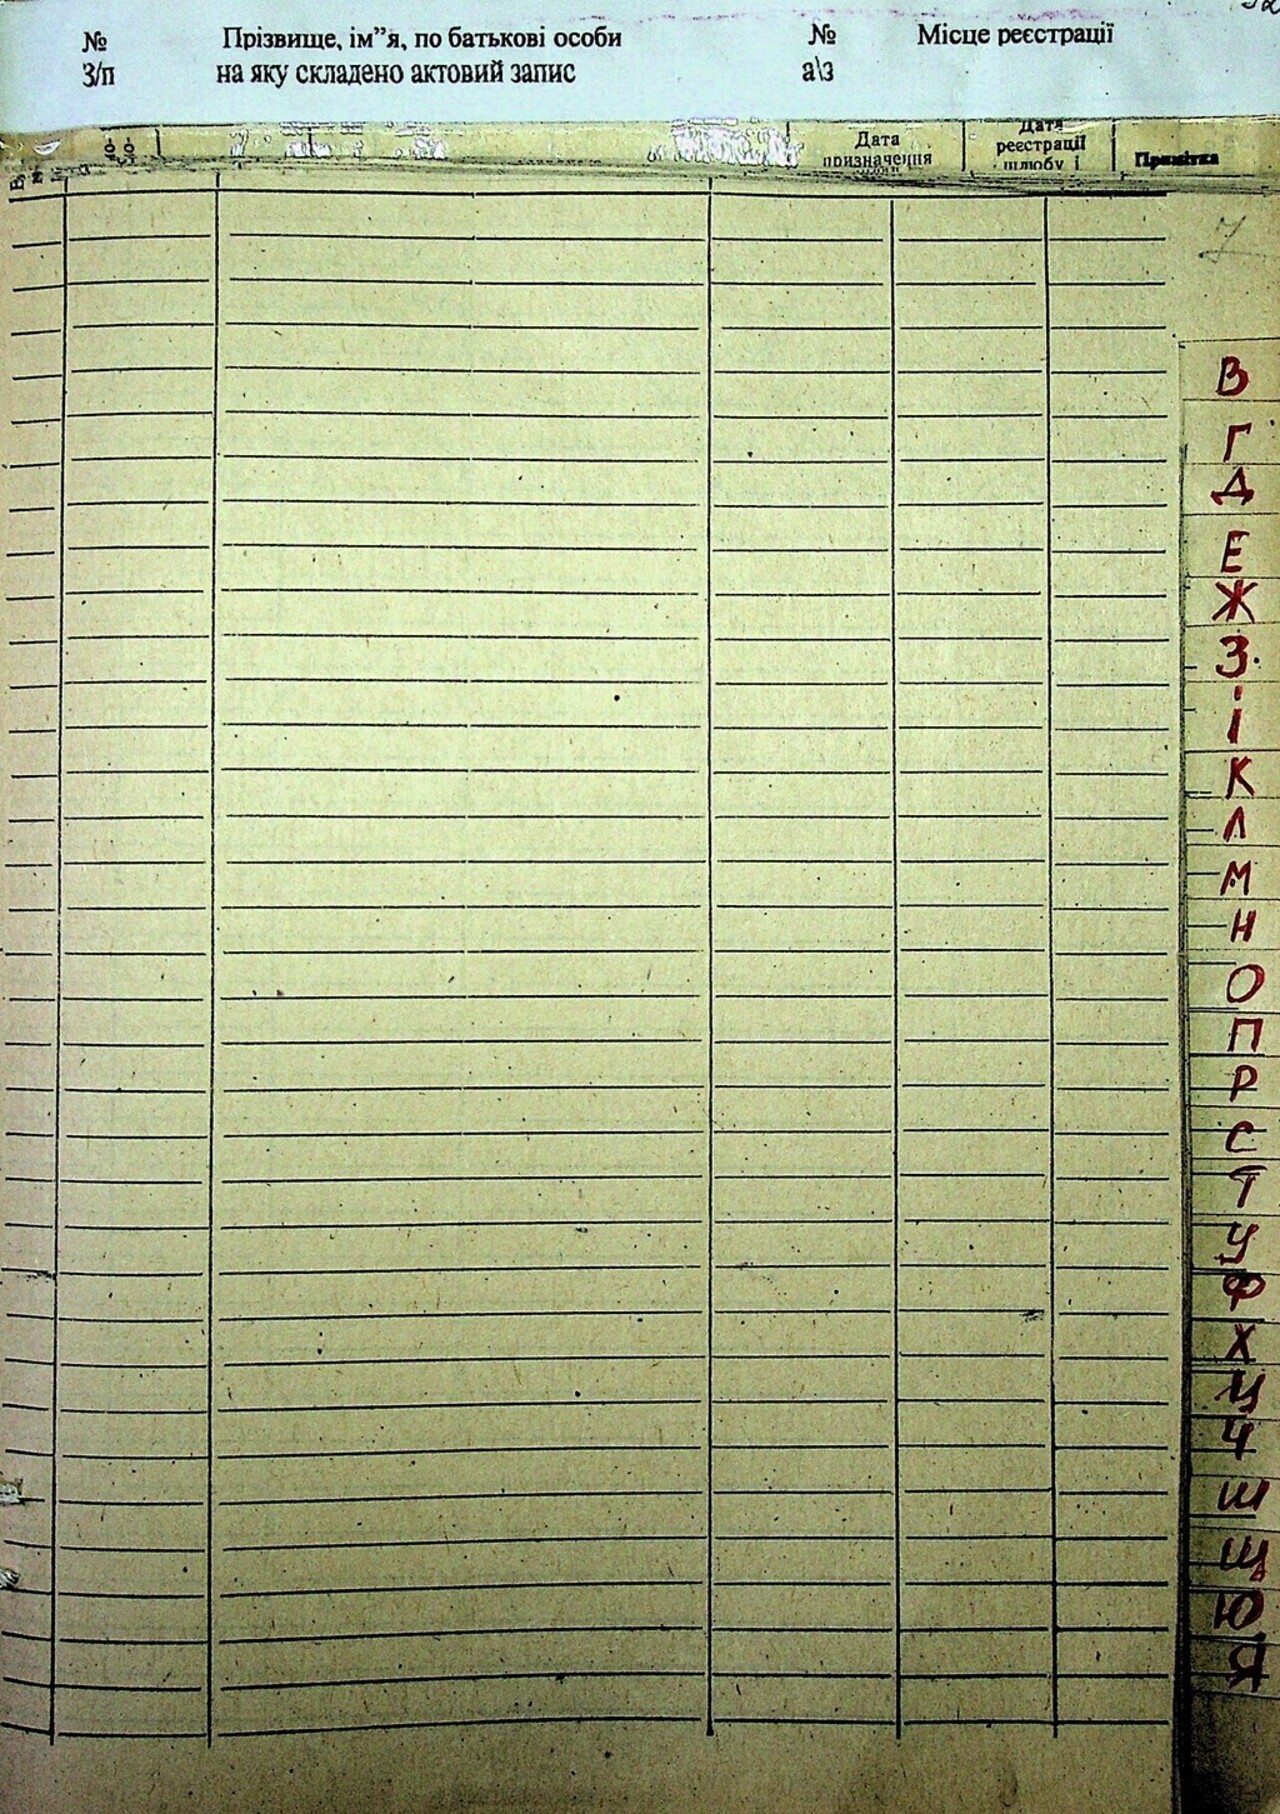 № Прізвище, ім”я, по батькові особи № Місце реєстрації
З/п на яку складено актовий запис а\з
Дата призначення
Дата реєстрації шлюбу і
Примітка
7
В
Г
Д
Е
Ж
З
І
К
Л
М
Н
О
П
Р
С
Т
У
Ф
Х
Ц
Ч
Ш
Щ
Ю
Я